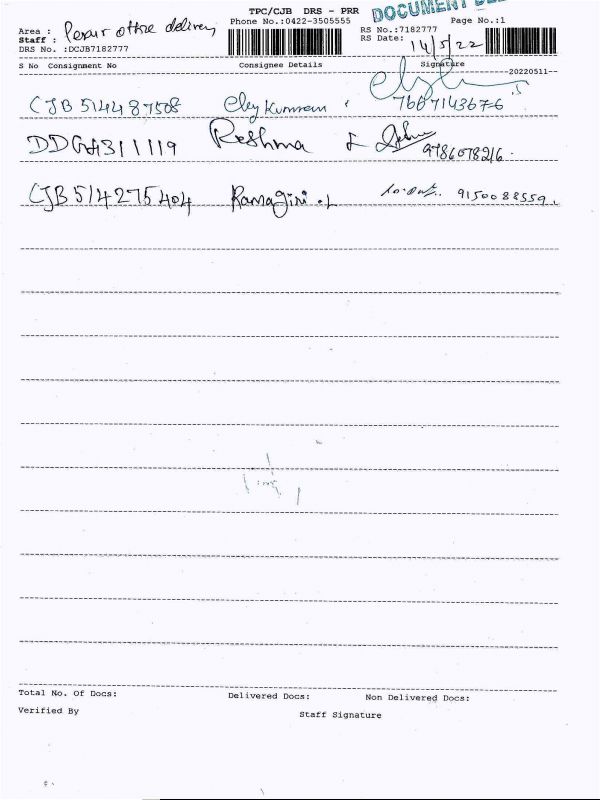 TPC/CJB DRS - PRR
DOCUMENT
Phone No.:0422-3505555
Page No.:1
Area : Perur office delivery
Staff :
RS No.:7182777
DRS No. :DCJB7182777
RS Date: 14/5/22
S No Consignment No Consignee Details Signature
20220511--
CJB 514487508 7667143676
DDG4311119 Reshma 9786078216.
CJB 514275404 Ramagiri .L 9150088559.
Total No. Of Docs: Delivered Docs: Non Delivered Docs:
Verified By Staff Signature